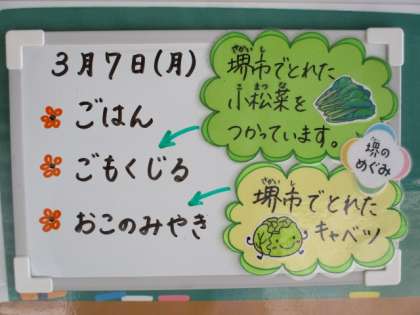 3月7日(月)
ごはん
ごもくじる
おこのみやき
さかいし
堺市でとれた
こまつな
小松菜を
つかっています。
堺の
めぐみ
さかいし
堺市でとれた
キャベツ